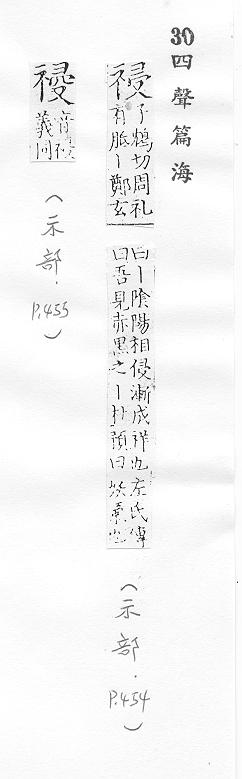 30四聲篇海
祲
子鴆切周礼
有眡丨鄭玄
曰丨陰陽相侵漸成祥也左氏傳
曰吾見赤黑之丨杜預曰妖氛也
（示部.P.454）
音祲
義同
（示部.P.455）